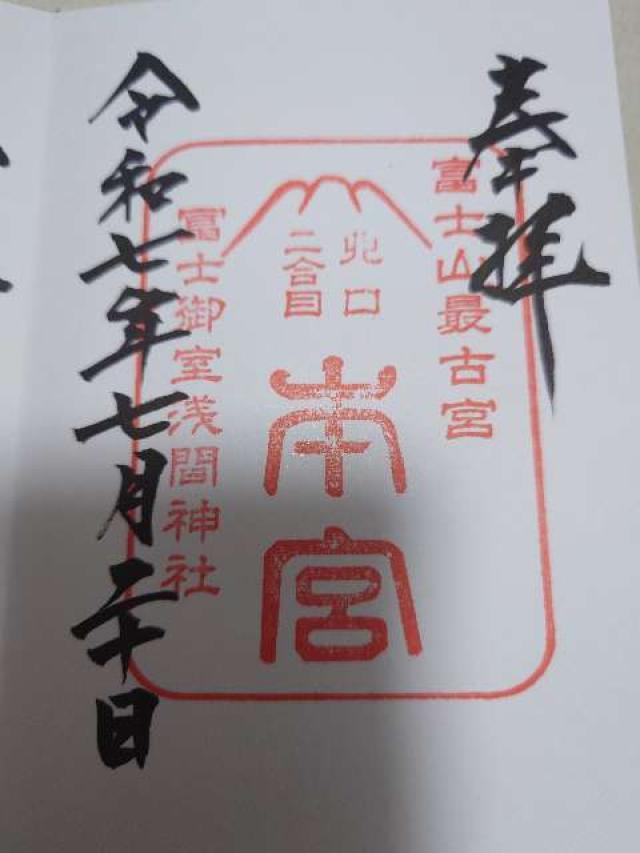 奉拝
富士山最古宮
北口
二合目
本宮
冨士御室浅間神社
令和七年七月二十日